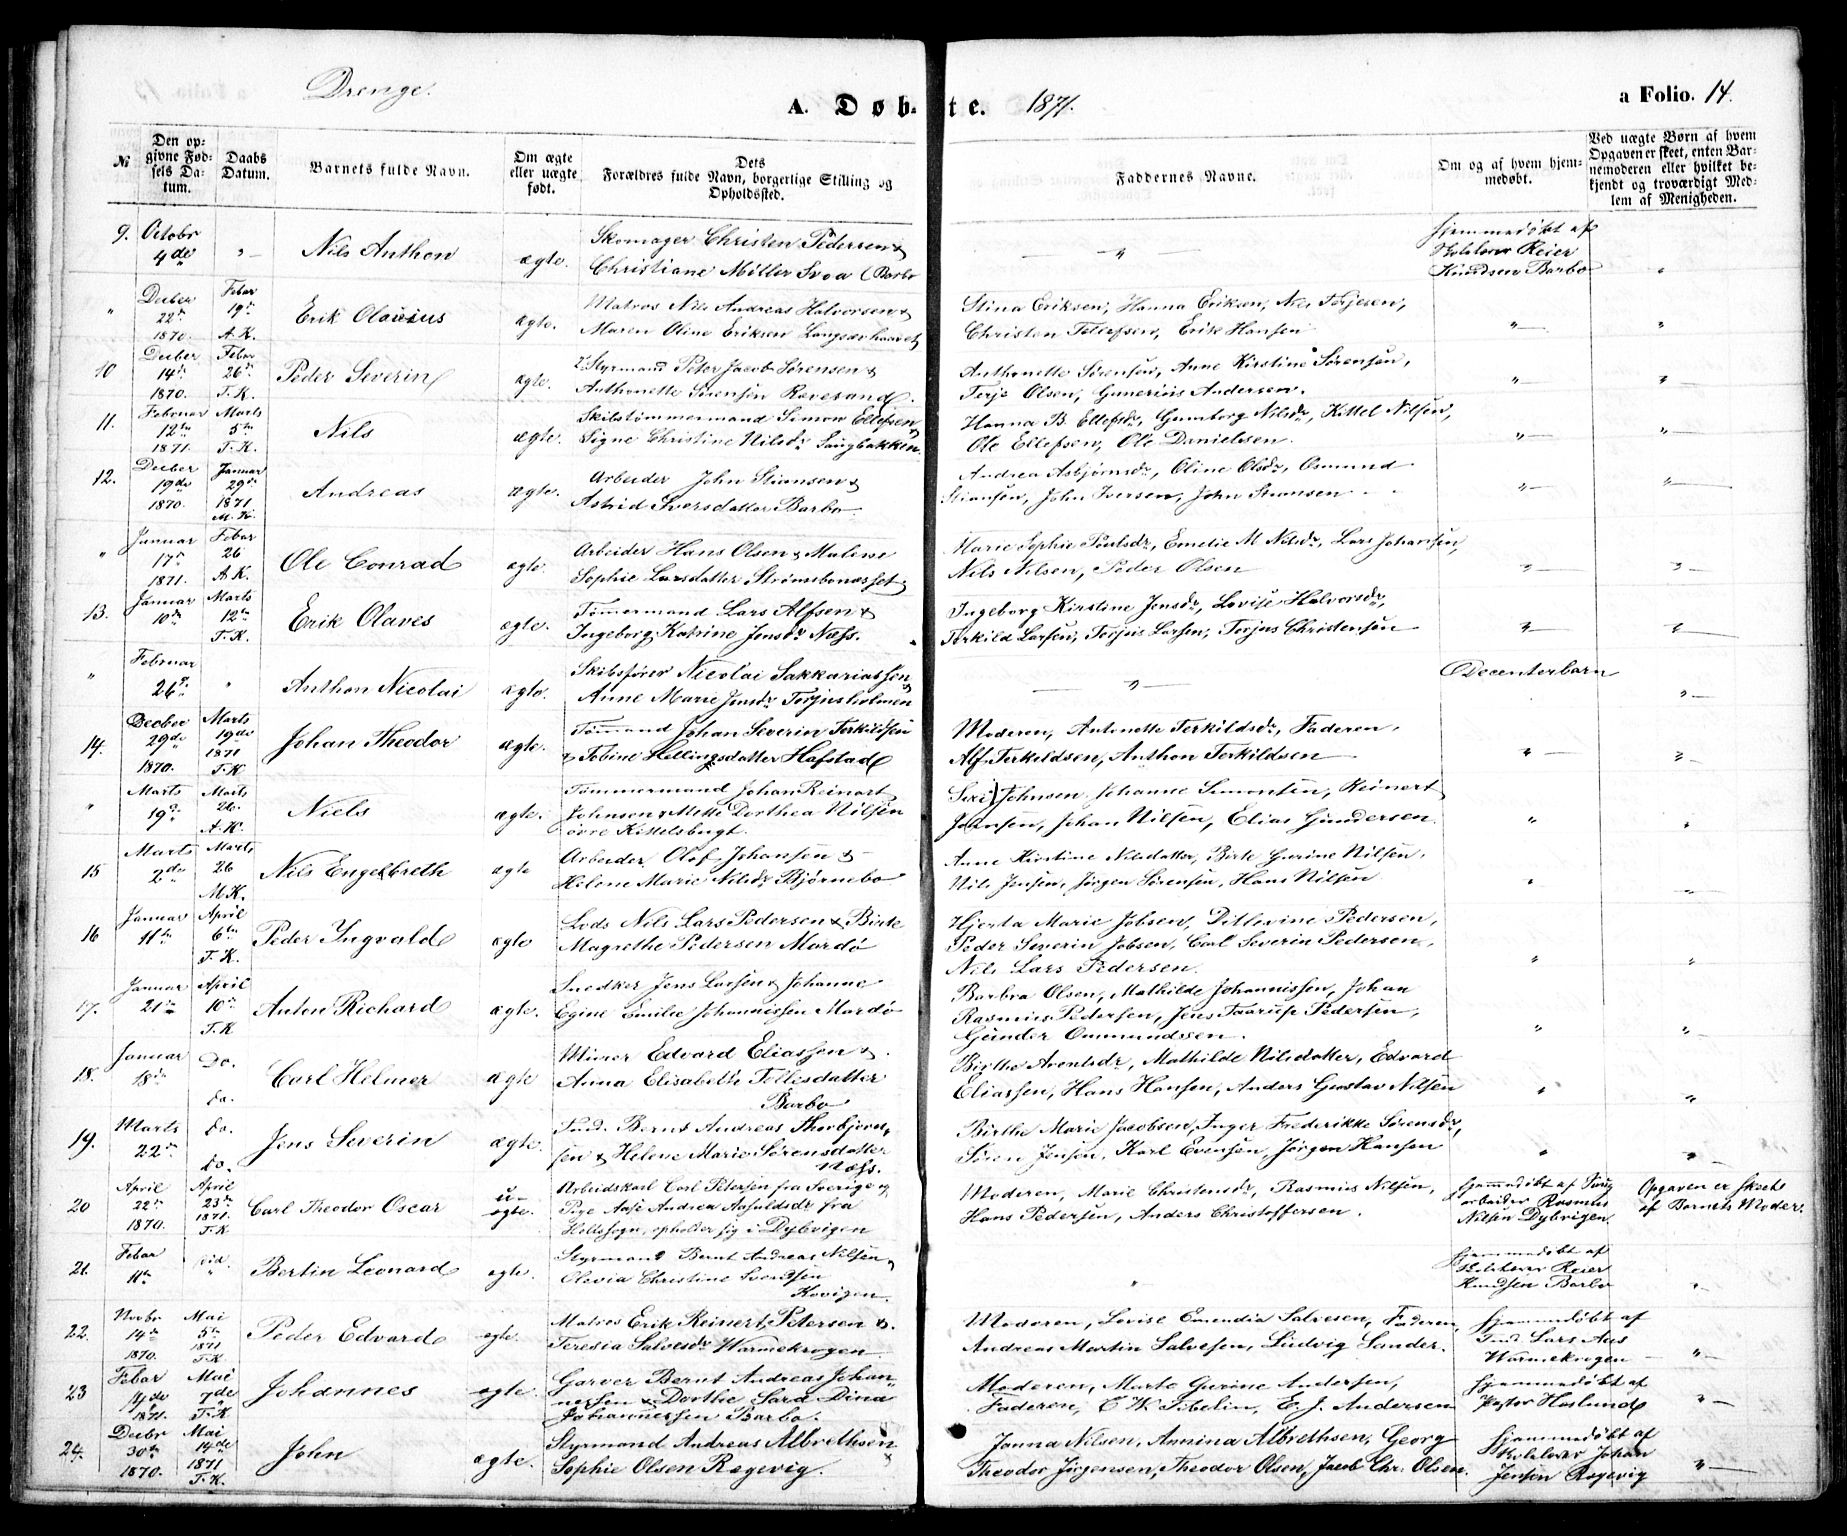 Drenge.
A. Døb- te. 1871.
a Folio. 14.
№
Den op-
givne Fød-
sels Da-
tum.
Daabs
Datum.
Barnets fulde Navn.
Om ægte
eller uægte
født.
Dets
Forældres fulde Navn, borgerlige Stilling og
Opholdssted.
Faddernes Navne.
Om og af hvem hjem-
medøbt.
Ved uægte Børn af hvem
Opgaven er skeet, enten Bar-
nemoderen eller hvilket be-
kjendt og troværdigt Med-
lem af Menigheden.
9. Octobr
4de
Nils Anthon
ægte.
Skomager Christen Pedersen &
Christiane Møller Svoa (Barbo
Hjemmedøbt af
Skolelærer Reier
Knudsen Barbo
" Decber
22de
1870.
Febar
19de
A.K.
Erik Olavius
ægte.
Matros Nils Andreas Halvorsen &
Maren Oline Eriksen Langsævhaavet
Stina Eriksen, Hanna Eriksen, Nils Terjesen,
Christen Tellefsen, Erik Hansen
10 Decber
14de
1870.
Febar
26de
T.K.
Peder Severin
ægte.
Styrmand Peter Jacob Sørensen &
Anthonette Sørensen Revesand.
Anthonette Sørensen, Anne Kirstine Sørensen,
Terje Olsen, Gunerius Andersen.
11. Februar
12te
1871.
Marts
5te
T.K.
Nils
ægte.
Skibstømmermand Simon Ellefsen &
Signe Christine Nilsdr Saugbakken.
Hanna B. Ellefsdr, Gunborg Nilsdr, Kittel Nilsen,
Ole Ellefsen, Ole Danielsen.
12. Decber
19de
1870.
Januar
29de
1871
M.K.
Andreas
ægte.
Arbeider John Stiansen &
Astrid Sversdatter Barbo.
Andrea Asbjørnsdr, Oline Olsdr, Osmund
Stiansen, John Iversen, John Stiansen
" Januar
17de
1871.
Febar
26
A.K.
Ole Conrad
ægte.
Arbeider Hans Olsen & Malene
Sophie Larsdatter Strømsbonesset
Marie Sophie Poulsdr, Emelie M Nilsdr, Lars Johansen,
Nils Nilsen, Peder Olsen
13. Januar
10de
Marts
12te
T.K.
Erik Olaves
ægte.
Tømermand Lars Alfsen &
Ingeborg Katrine Jensdr Næss.
Ingeborg Kirstine Jensdr, Lovise Halvorsdr,
Terkild Larsen, Terjus Larsen, Terjus Christensen
" Februar
26de
Anthon Nicolai
ægte.
Skibsfører Nicolai Sakkariassen &
Anne Marie Jensdr Torjusholmen
Decenterbarn
14. Decber
29de
1870.
Marts
19de
1871
T.K
Johan Theodor
ægte.
Tømmand Johan Severin Terkildsen
& Tobine Hellingsdatter Hafstad
Moderen, Antonette Terkildsdr, Faderen,
Alf Terkildsen, Anthon Terkildsen
" Marts
19de
Marts
26.
A.K.
Niels
ægte.
Tømmermand Johan Reinart
Johnsen & Mette Dorthea Nilsen
øvre Kittelsbugt.
Siri Johnsen, Johanne Simonsen, Reinert
Johnsen, Johan Nilsen, Elias Gundersen.
15 Marts
2de
Marts
26
M.K.
Nils Engelbreth
ægte
Arbeider Olof Johansen &
Helene Marie Nilsdr Bjørnebo
Anne Kirstine Nilsdatter, Birte Gurine Nilsen,
Nils Jensen, Jørgen Sørensen, Hans Nilsen
16 Januar
11te
April
6te
T.K.
Peder Yngvald
ægte
Lods Nils Lars Pedersen & Birte
Magrethe Pedersen Mærdø
Hjerta Marie Jobsen, Ditlevine Pedersen,
Peder Severin Jobsen, Carl Severin Pedersen,
Nils Lars Pedersen.
17. Januar
21te
April
10de
T.K
Anton Richard
ægte.
Snedker Jens Larsen & Johanne
Egine Emilie Johannissen Mærdø
Barbra Olsen, Mathilde Johannissen, Johan
Rasmus Pedersen, Jens Taarup Pedersen,
Gunder Ommundsen.
18. Januar
18de
Do.
do.
Carl Helmer
ægte
Minør Edvard Eliassen &
Anna Elisabeth Tellisdatter
Barbo
Birthe Arentsdr, Mathilde Nilsdatter, Edvard
Eliassen, Hans Hansen, Anders Gustav Nilsen
19. Marts
22de
Do.
do.
Jens Severin
ægte.
Bernt Andreas Thorbjørn-
sen & Helene Marie Sørensdatter
Næss.
Birthe Marie Jacobsen, Inger Frederikke Sørensdr,
Søren Jensen, Karl Evensen, Jørgen Hansen
20 April
22de
1870.
April
23de
1871.
T.K
Carl Theodor Oscar
u-
ægte.
Arbeidskarl Carl Petersen fra Sverige og
Pige Aase Andrea Aasuldsdr fra
Holtesogn, opholder sig i Dybvigen
Moderen, Marie Christensdr, Rasmus Nilsen,
Hans Pedersen, Anders Christoffersen.
Hjemmedøbt af
arbeider Rasmus
Nilsen Dybvigen
Opgaven er skeet
af Barnets Moder.
21. Febar
11te
Bertin Leonard
ægte.
Styrmand Bernt Andreas Nilsen &
Olevia Christine Svendsen
Kovigen.
Hjemmedøbt af
Skolelærer Reier
Knudsen Barbo
22. Novbr
14de
1870.
Mai
5te
1871
T.K.
Peder Edvard
ægte.
Matros Erik Reinert Petersen &
Teresia Salvesdr Warmekrogen
Moderen, Lovise Enendia Salvesen, Faderen,
Andreas Martin Salvesen, Ludvig Sander.
Hjemmedøbt af
Lars Aas
Warmekrogen
23 Febar
14de
1871.
Mai
7de
T.K
Johannes
ægte.
Garver Bernt Andreas Johan-
nessen & Dorthe Sara Dina
Johannessen Barbo.
Moderen, Marte Gurine Andersen,
Faderen, C W. Sibelin, E. J. Andersen
Hjemmedøbt af
Pastor Haslund
24. Decbr
30te
1870.
Mai
14de
1871
T.K.
John
ægte.
Styrmand Andreas Albrethsen &
Sophie Olsen Rægevig.
Janna Nilsen, Annina Albrethsen, Georg
Theodor Jørgensen, Theodor Olsen, Jacob Chr. Olsen.
Hjemmedøbt af
Skolelærer Johan
Jensen Rægevig